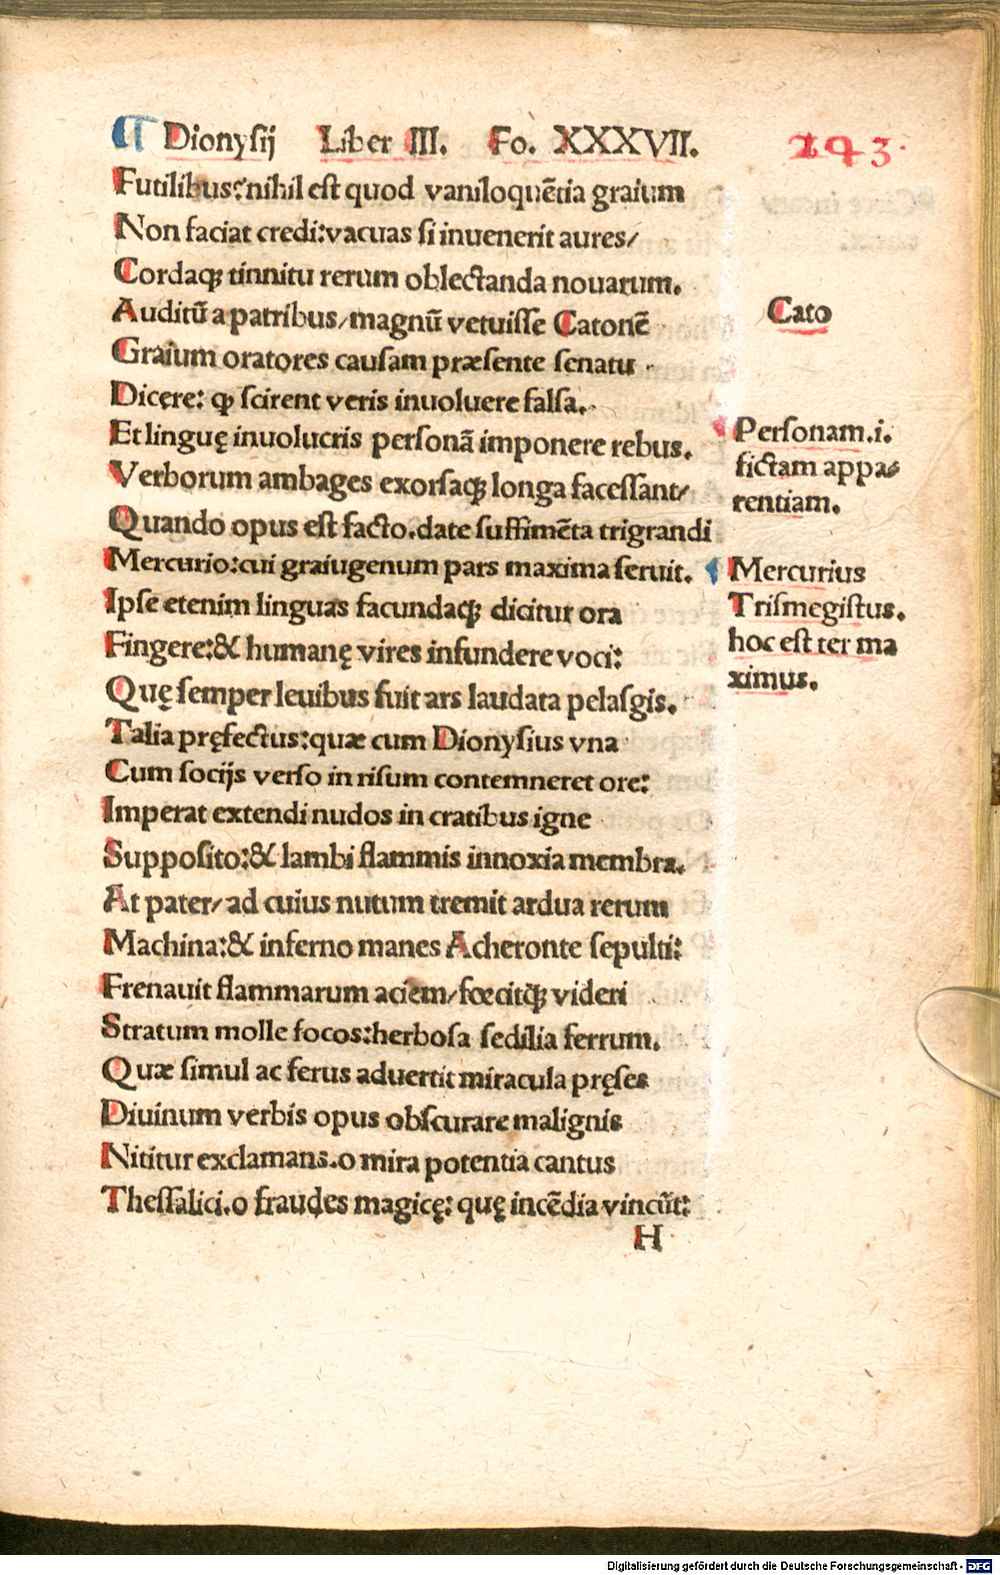 ¶ Dionysij Liber III. Fo. XXXVII.
293.
Futilibus: nihil est quod vaniloquẽtia graium
Non faciat credi: vacuas si inuenerit aures/
Cordaq; tinnitu rerum oblectanda nouarum.
Auditũ a patribus/magnũ vetuisse Catonẽ
Graium oratores causam præsente senatu
Dicere: ꝙ scirent veris inuoluere falsa.
Et linguę inuolucris personã imponere rebus.
Verborum ambages exorsaq; longa facessant/
Quando opus est facto. date suffimẽta trigrandi
Mercurio: cui graiugenum pars maxima seruit.
Ipse etenim linguas facundaq; dicitur ora
Fingere: & humanę vires infundere voci:
Quę semper leuibus fuit ars laudata pelasgis.
Talia pręfectus: quæ cum Dionysius vna
Cum socijs verso in risum contemneret ore:
Imperat extendi nudos in cratibus igne
Supposito: & lambi flammis innoxia membra.
At pater/ ad cuius nutum tremit ardua rerum
Machina: & inferno manes Acheronte sepulti:
Frenauit flammarum aciem/ fœcitq; videri
Stratum molle focos: herbosa sedilia ferrum.
Quæ simul ac ferus aduertit miracula pręses
Diuinum verbis opus obscurare malignis
Nititur exclamans. o mira potentia cantus
Thessalici. o fraudes magicę: quę incẽdia vincũt:
H
Cato
Personam .i.
fictam appa⸗
rentiam.
Mercurius
Trismegistus.
hoc est ter ma
ximus.
Digitalisierung gefördert durch die Deutsche Forschungsgemeinschaft - DFG